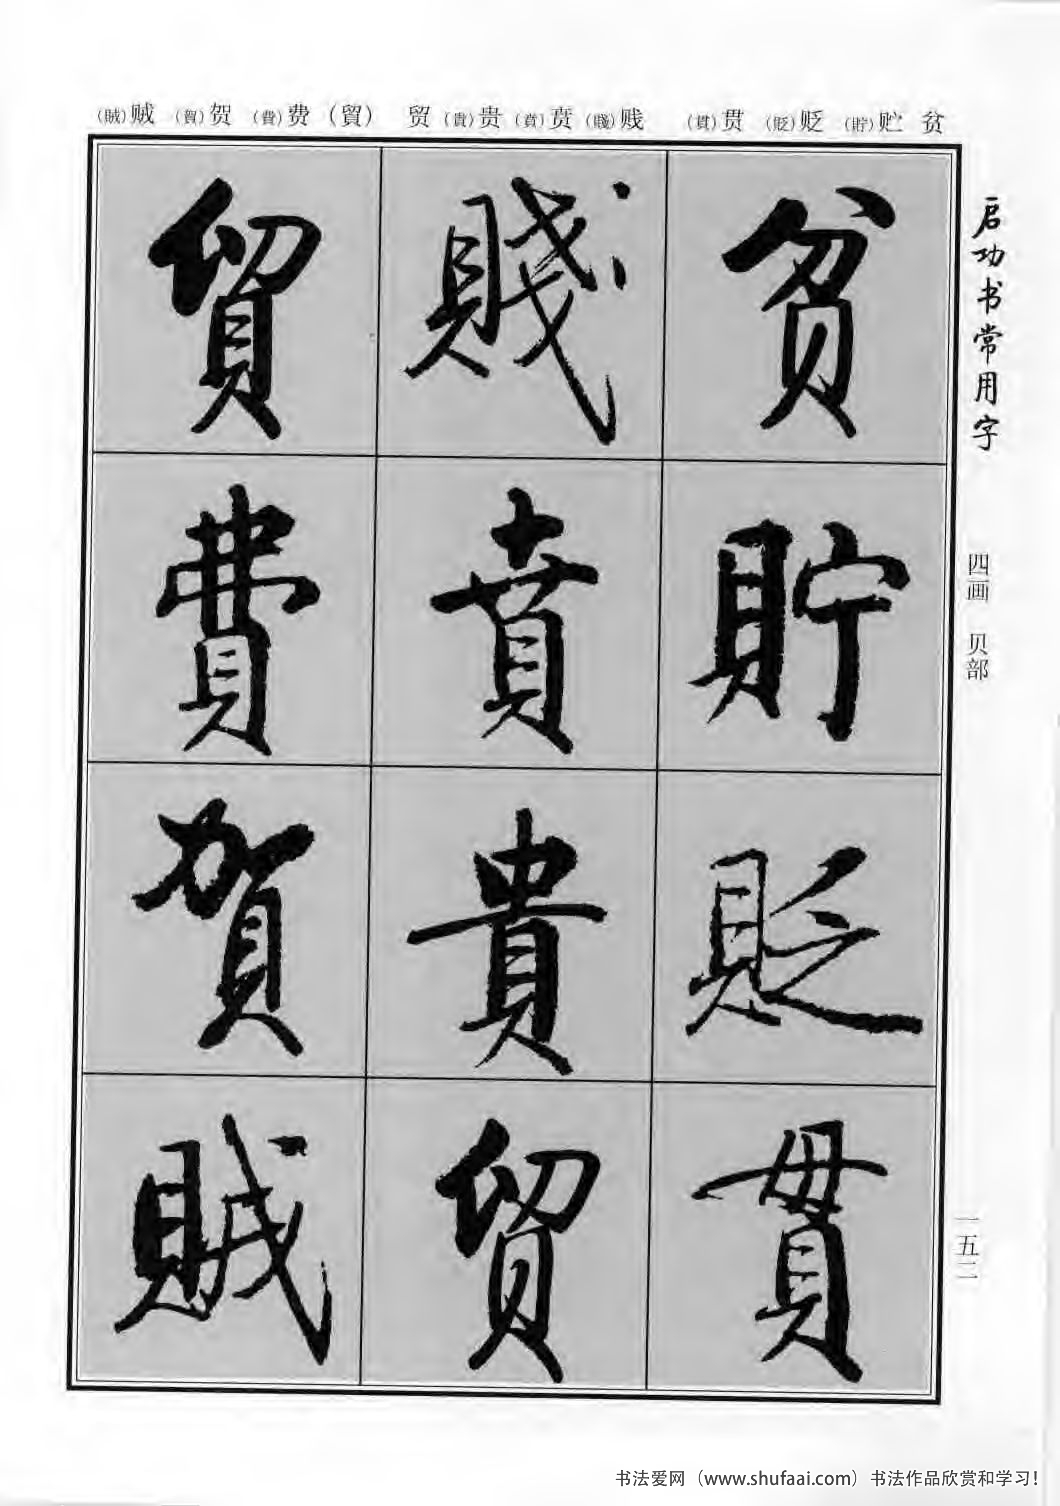 启功书常用字
四画 贝部
一五二
贫 贮(貯) 贬(貶) 贯(貫)
贱(賤) 贲(賁) 贵(貴) 贸
(貿) 费(費) 贺(賀) 贼(賊)
貧
貯
貶
貫
賤
賁
貴
貿
貿
費
賀
賊
书法爱网（www.shufaai.com）书法作品欣赏和学习！